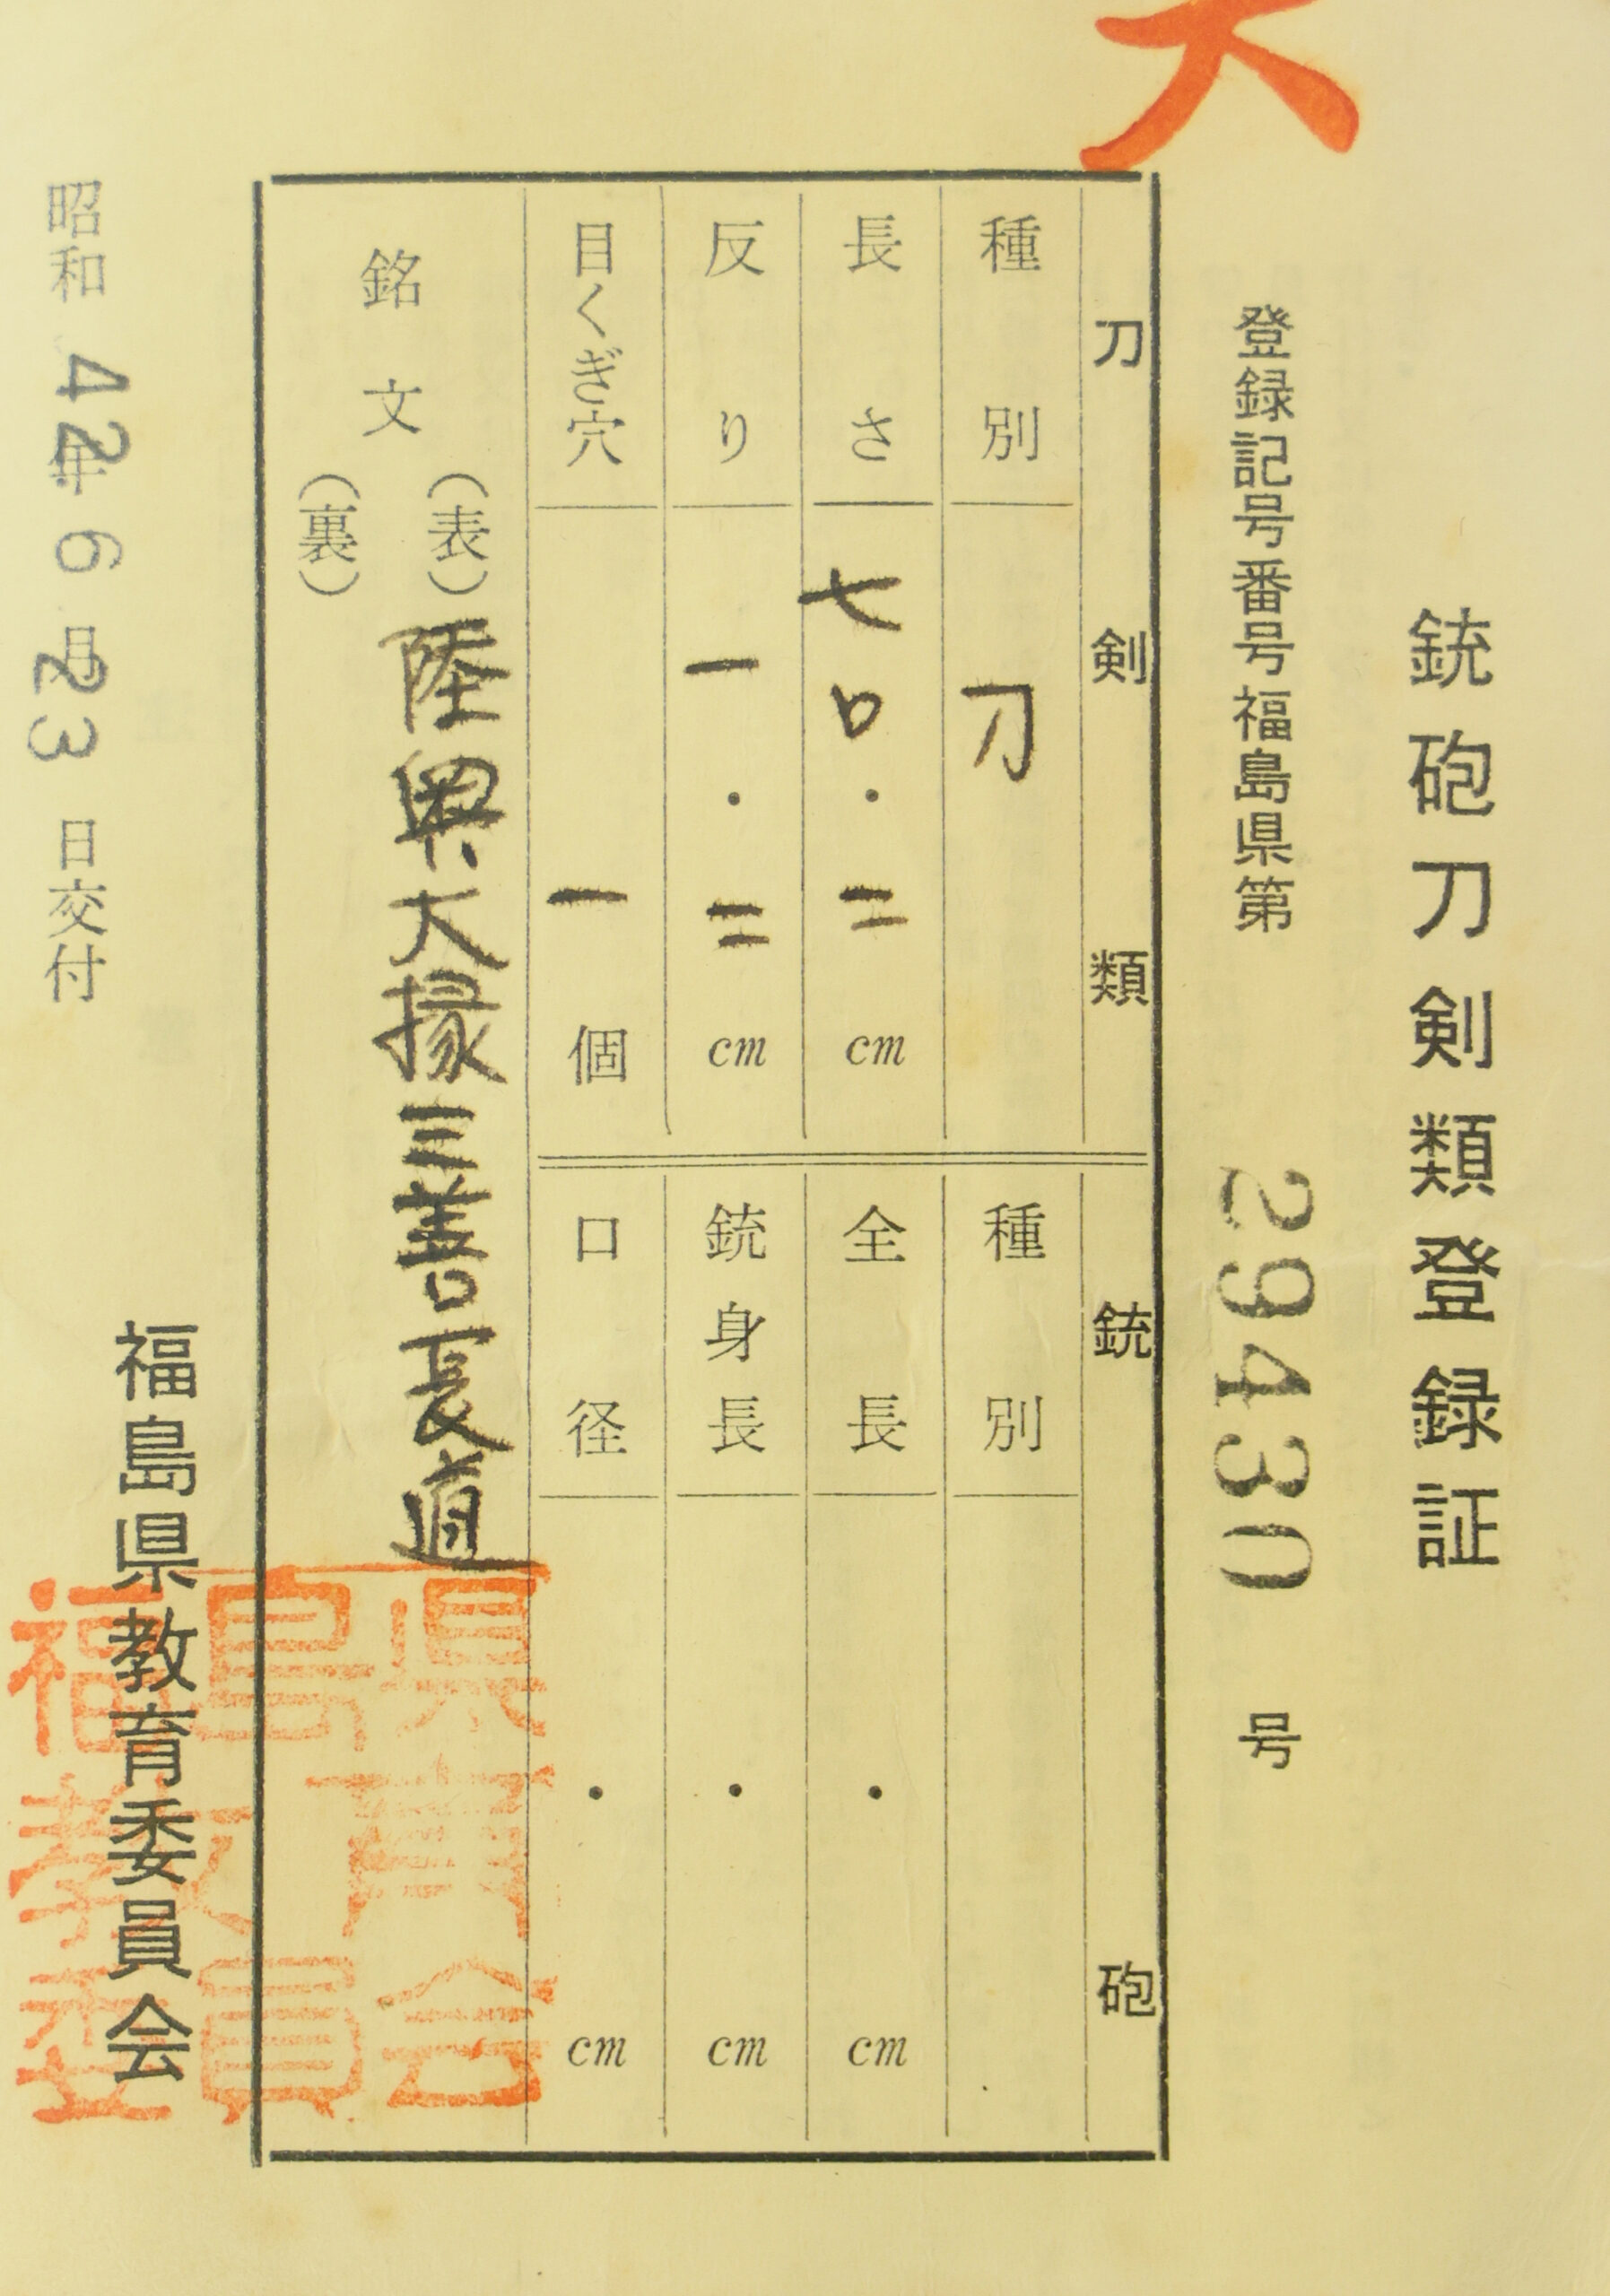 大
銃砲刀剣類登録証
登録記号番号福島県第 29430 号
刀剣類
種別 刀
長さ 七〇・二 cm
反り 一・二 cm
目くぎ穴 一 個
銃砲
種別
全長 ・ cm
銃身長 ・ cm
口径 ・ cm
銘文
(表) 陸奥大掾三善長道
(裏)
昭和 42年 6月 23日交付
福島県教育委員会
福島県教育委員会